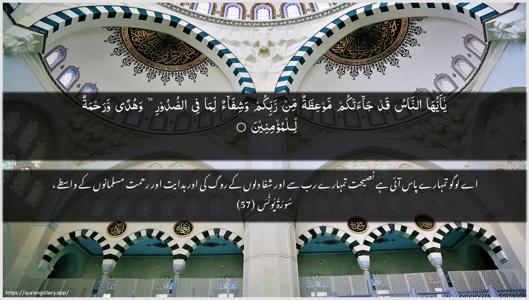 يٰۤاَيُّهَا النَّاسُ قَدْ جَآءَتْكُمْ مَّوْعِظَةٌ مِّنْ رَّبِّكُمْ وَشِفَآءٌ لِّمَا فِى الصُّدُوْرِ ۙ وَهُدًى وَّرَحْمَةٌ
لِّـلْمُؤْمِنِيْنَ ○
اے لوگو تمہارے پاس آئی ہے نصیحت تمہارے رب سے اور شفا دلوں کے روگ کی اور ہدایت اور رحمت مسلمانوں کے واسطے ،
سُورَةُ يُونُس (57)
https://qurangallery.app/